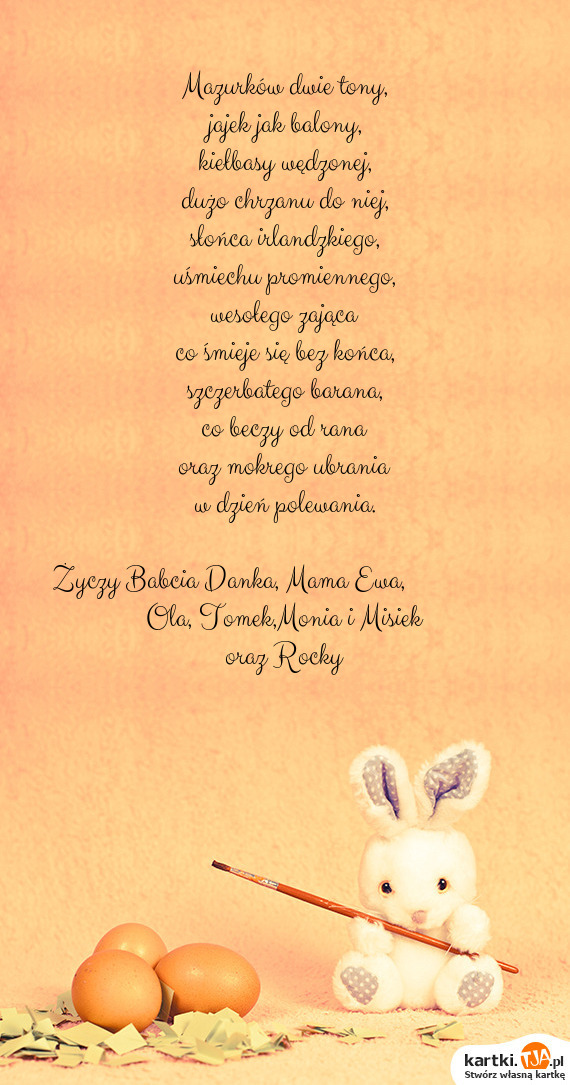 Mazurków dwie tony,
jajek jak balony,
kiełbasy wędzonej,
dużo chrzanu do niej,
słońca irlandzkiego,
uśmiechu promiennego,
wesołego zająca
co śmieje się bez końca,
szczerbatego barana,
co beczy od rana
oraz mokrego ubrania
w dzień polewania.
Życzy Babcia Danka, Mama Ewa,
Ola, Tomek,Monia i Misiek
oraz Rocky
kartki.TJA.pl
Stwórz własną kartkę